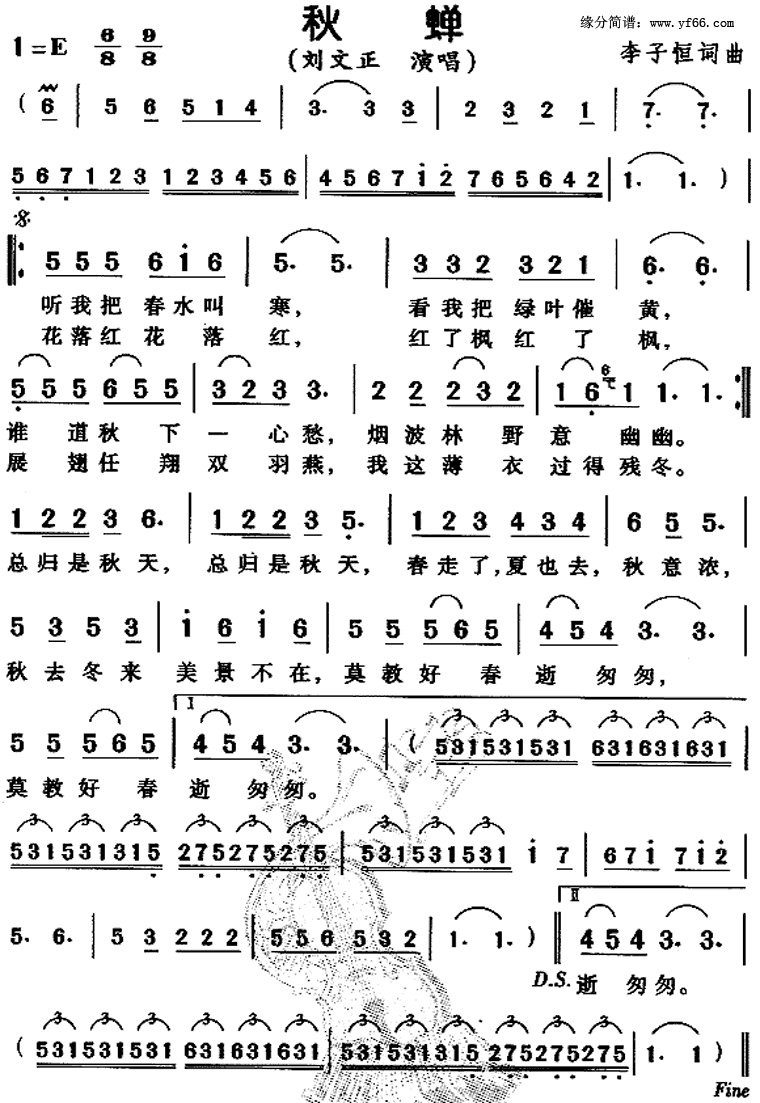 秋 蝉
缘分简谱：www.yf66.com
1=E 6/8 9/8
(刘文正 演唱)
李子恒词曲
( 6 | 5 6 5 1 4 | 3. 3 3 | 2 3 2 1 | 7. 7. |
5 6 7 1 2 3 1 2 3 4 5 6 | 4 5 6 7 1 2 7 6 5 6 4 2 | 1. 1. ) |
5 5 5 6 1 6 | 5. 5. | 3 3 2 3 2 1 | 6. 6. |
听我把 春水叫 寒， 看我把 绿叶催 黄，
花落红 花 落 红， 红了枫 红 了 枫，
5 5 5 6 5 5 | 3 2 3 3. | 2 2 2 3 2 | 1 6 6 1 1. 1. :
谁 道秋 下 一 心愁， 烟波林 野意 幽幽。
展 翅任 翔 双 羽燕， 我这薄 衣 过得残冬。
1 2 2 3 6. | 1 2 2 3 5. | 1 2 3 4 3 4 | 6 5 5. |
总归是秋天， 总归是秋天， 春走了，夏也去，秋意浓，
5 3 5 3 | 1 6 1 6 | 5 5 5 6 5 | 4 5 4 3. 3. |
秋去冬来 美景不在，莫教好 春 逝 匆匆，
I
5 5 5 6 5 | 4 5 4 3. 3. | ( 5 3 1 5 3 1 5 3 1 6 3 1 6 3 1 6 3 1 |
莫教好 春 逝 匆匆。
5 3 1 5 3 1 3 1 5 2 7 5 2 7 5 2 7 5 | 5 3 1 5 3 1 5 3 1 1 7 | 6 7 1 7 1 2 |
II
5. 6. | 5 3 2 2 2 | 5 5 6 5 3 2 | 1. 1. ) | 4 5 4 3. 3. |
D.S. 逝 匆匆。
( 5 3 1 5 3 1 5 3 1 6 3 1 6 3 1 6 3 1 | 5 3 1 5 3 1 3 1 5 2 7 5 2 7 5 2 7 5 | 1. 1 )
Fine